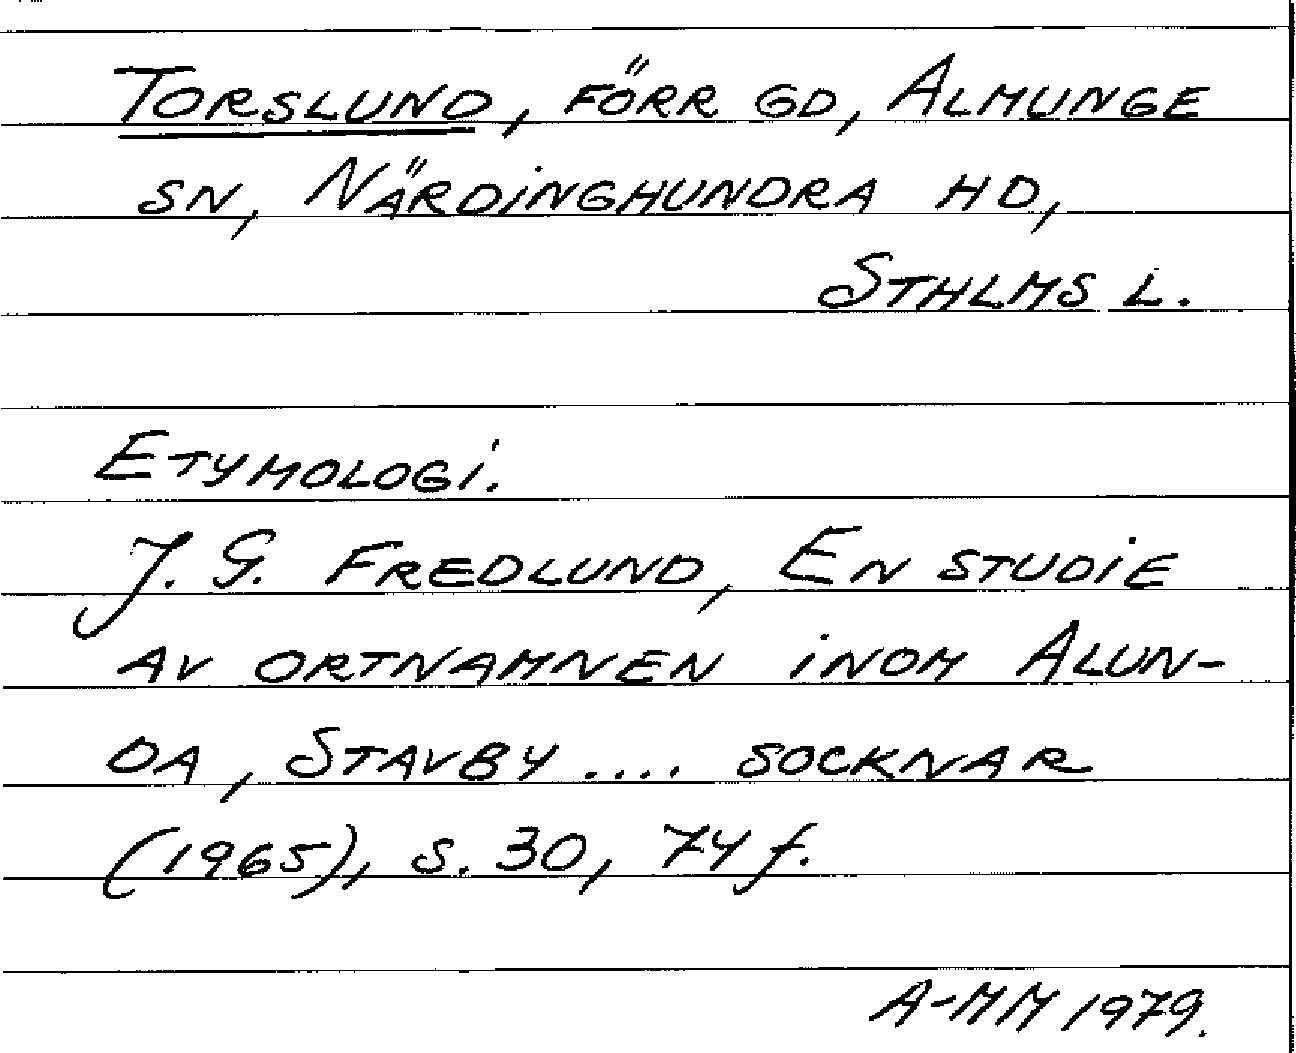 TORSLUND, FÖRR GD, ALMUNGE
SN, NÄRDINGHUNDRA HD,
STHLMS L.
ETYMOLOGI.
J. G. FREDLUND, EN STUDIE
AV ORTNAMNEN INOM ALUN-
DA, STAVBY .... SOCKNAR
(1965), S. 30, 74 f.
A-MM 1979.